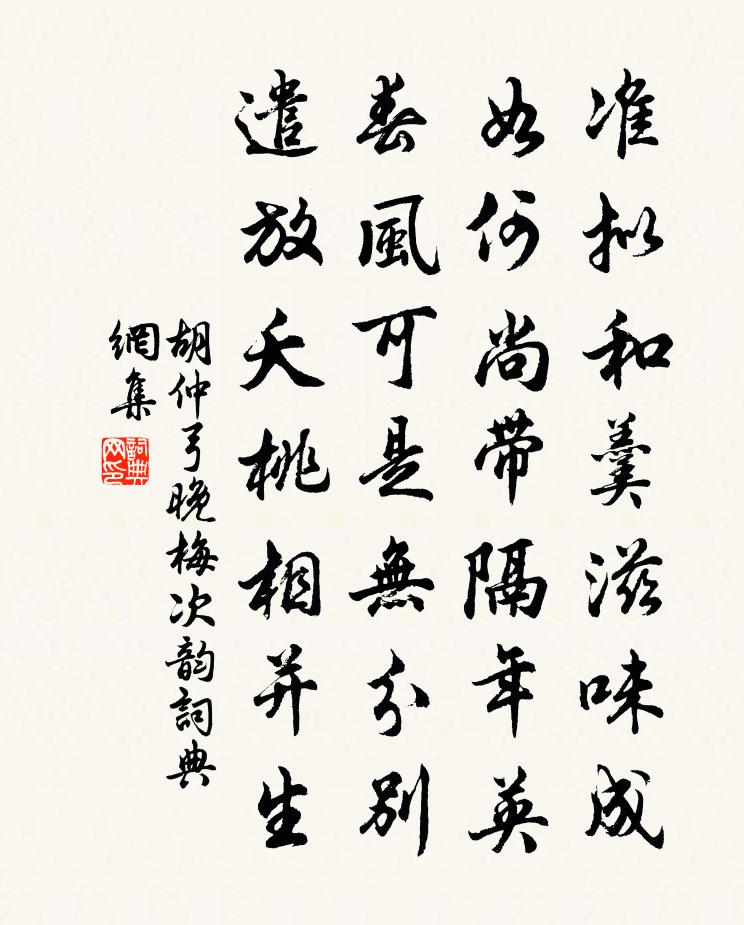 准拟和羹滋味成
如何尚带隔年英
春風可是無分别
遣放夭桃相并生
胡仲弓晚梅次韵詞典
網集
詞典
网印